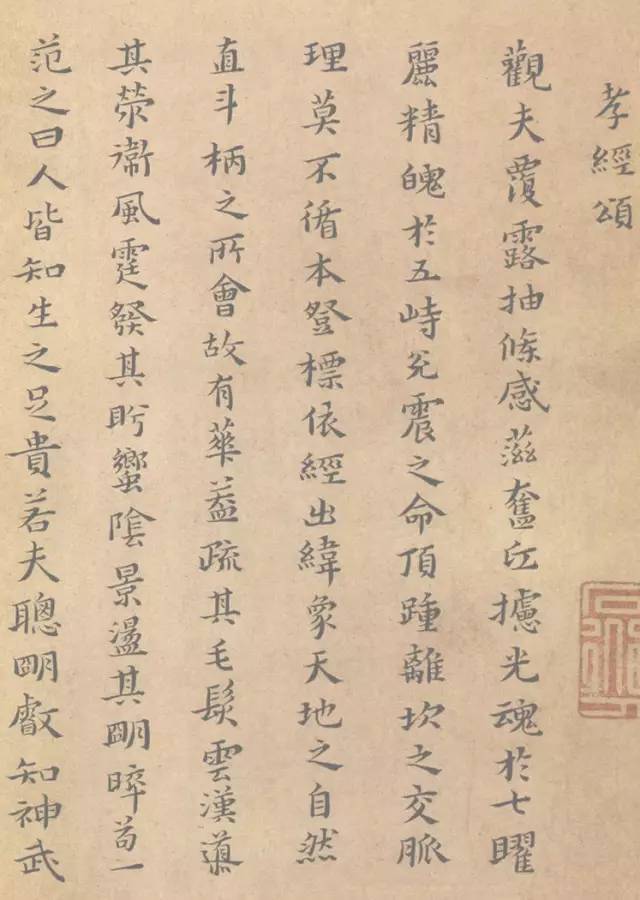 孝經頌
觀夫覆露抽條感滋奮丘攄光魂於七曜
麗精魄於五峙兌震之命頂踵離坎之交脈
理莫不循本登標依經出緯象天地之自然
直斗柄之所會故有華蓋疏其毛髮雲漢導
其滎衛風霆發其肸蠁陰景盪其明晬苟一
范之曰人皆知生之足貴若夫聰明叡知神武